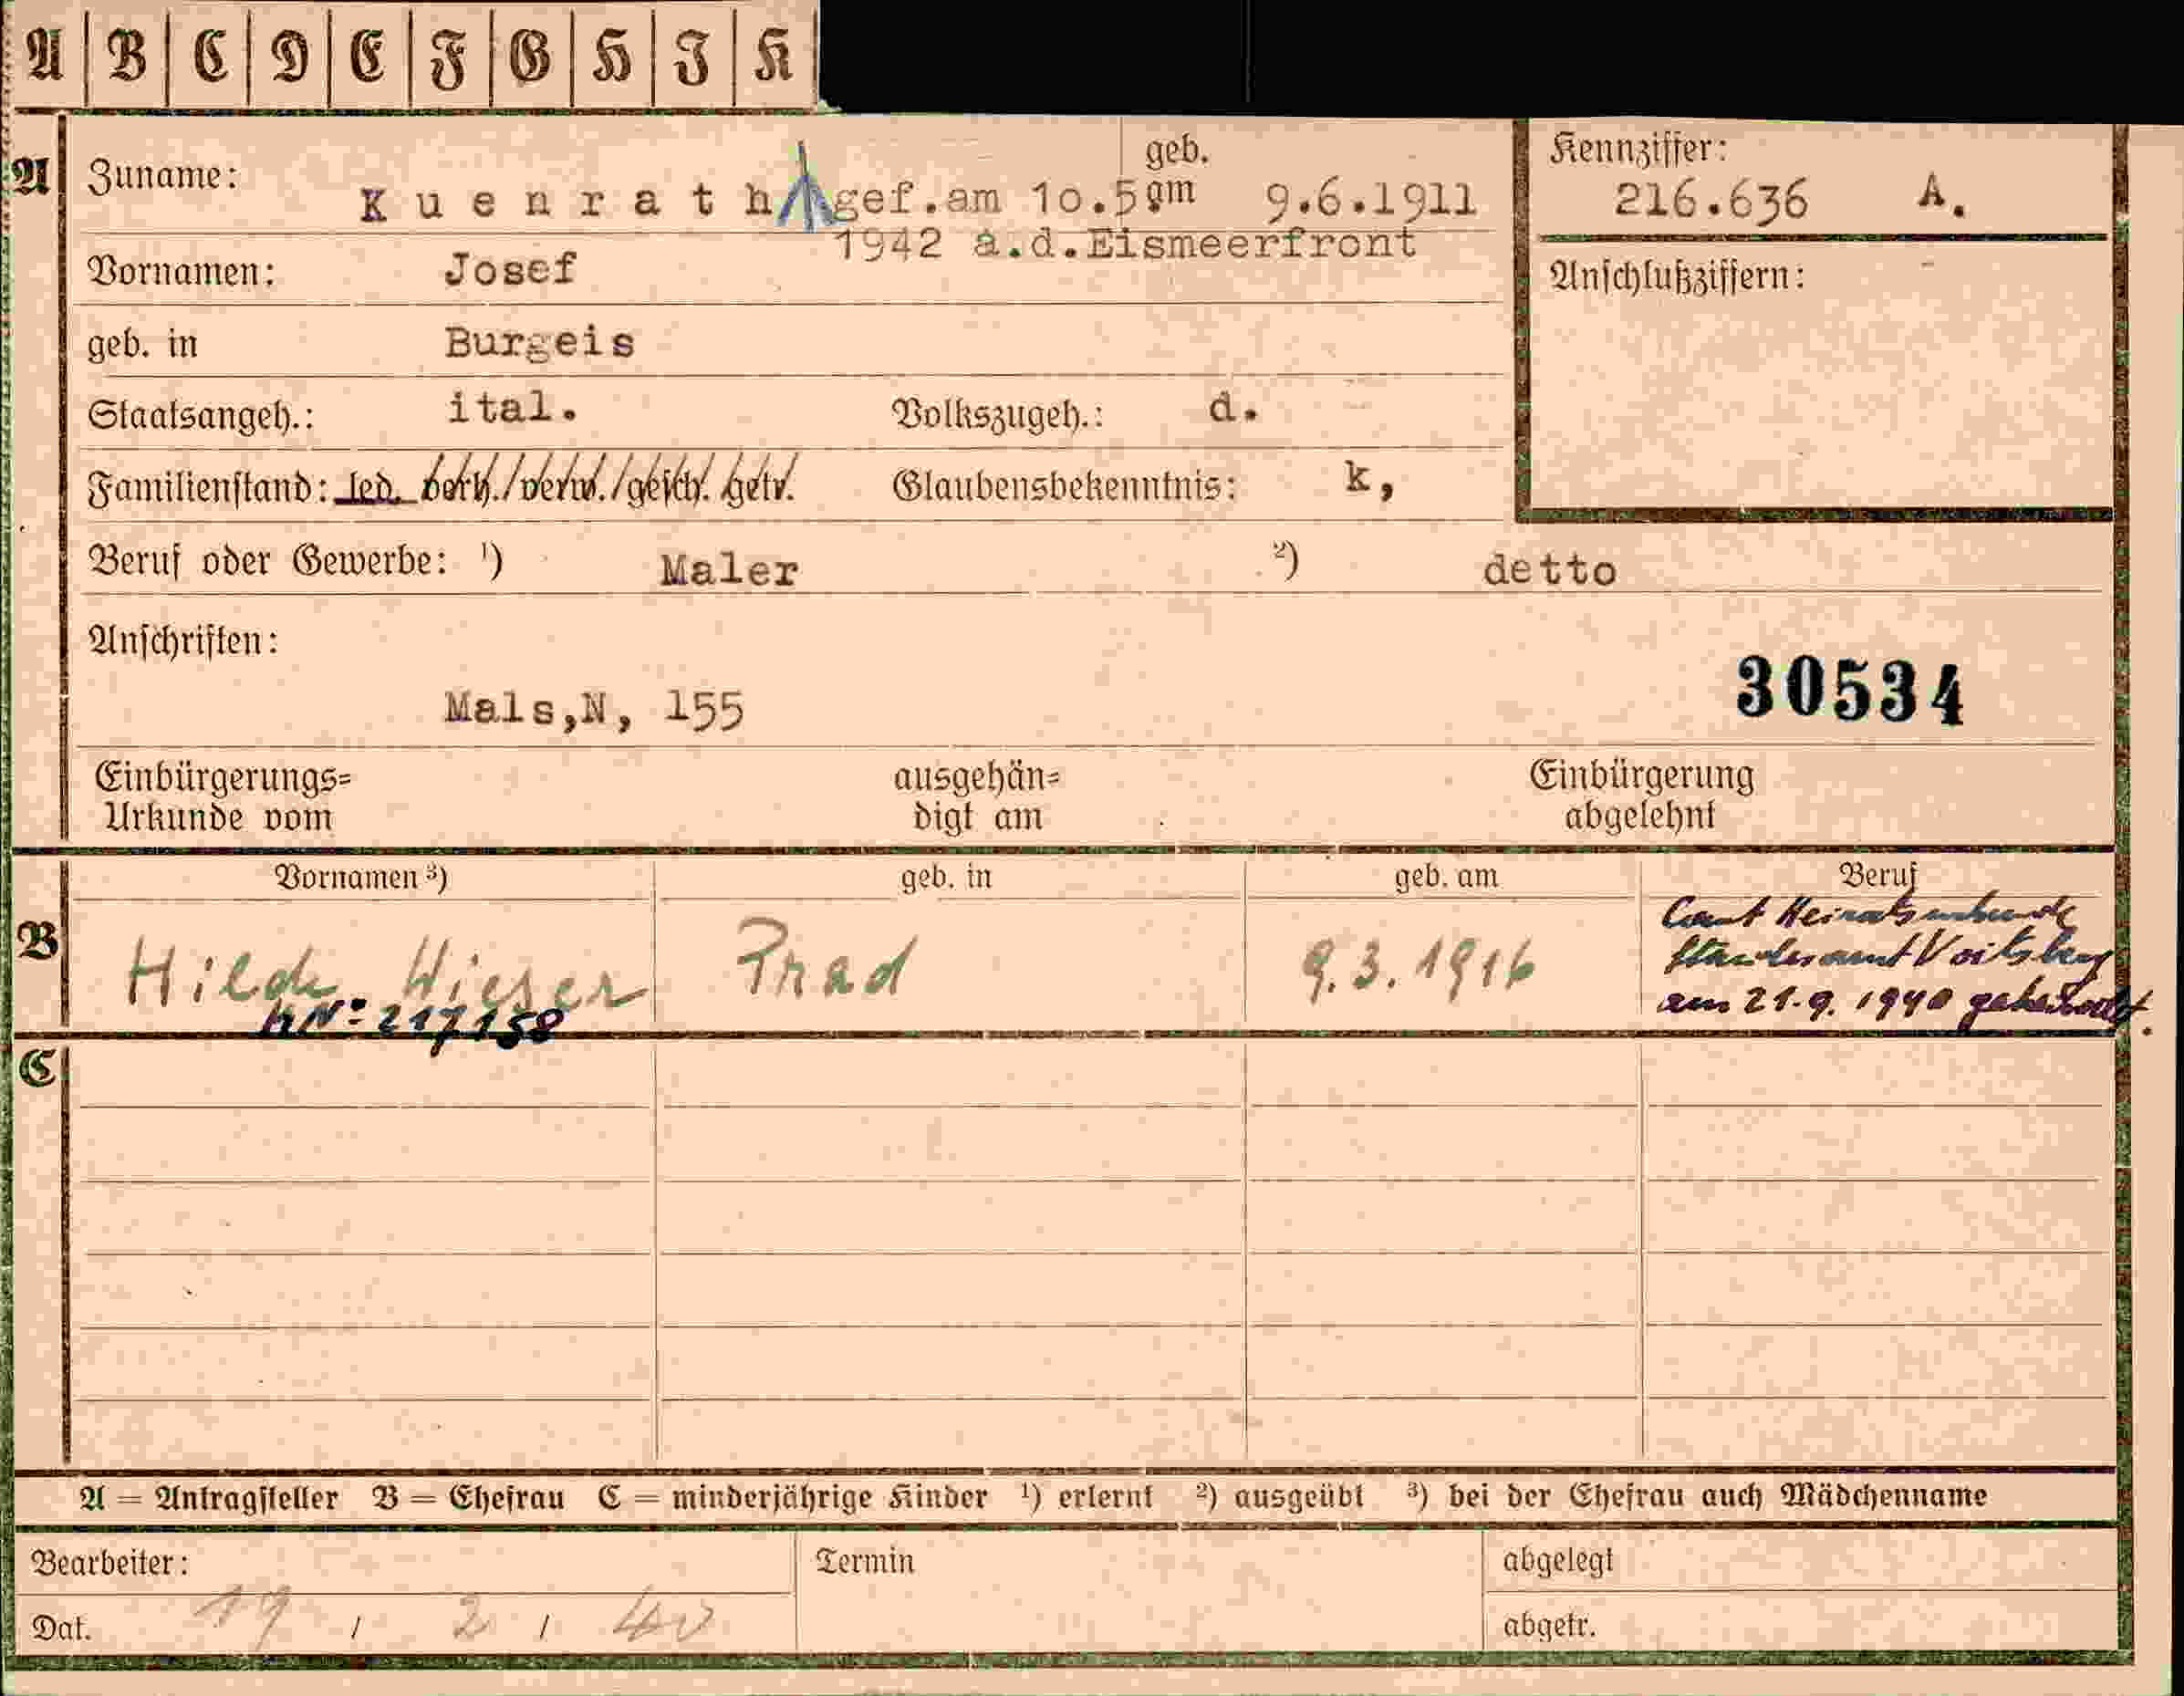 A B C D E F G H I K
A Zuname: Kuenrath gef.am 10.5 geb. am 9.6.1911 Kennziffer: 216.636 A.
1942 a.d.Eismeerfront
Vornamen: Josef Anschlußziffern:
geb. in Burgeis
Staatsangeh.: ital. Volkszugeh.: d.
Familienstand: led. verh./verw./gesch. getr. Glaubensbekenntnis: k,
Beruf oder Gewerbe: ¹) Maler ²) detto
Anschriften:
30534
Mals,N, 155
Einbürgerungs= ausgehän= Einbürgerung
Urkunde vom digt am abgelehnt
Vornamen ³) geb. in geb. am Beruf
B Hilde Wieser Prad 9.3.1916 Laut Heiratsurkunde
Standesamt Voitsberg
am 21.9.1940 geheiratet.
KN: 217158
C
A = Antragsteller B = Ehefrau C = minderjährige Kinder ¹) erlernt ²) ausgeübt ³) bei der Ehefrau auch Mädchenname
Bearbeiter: Termin abgelegt
Dat. 19 / 2 / 40 abgetr.